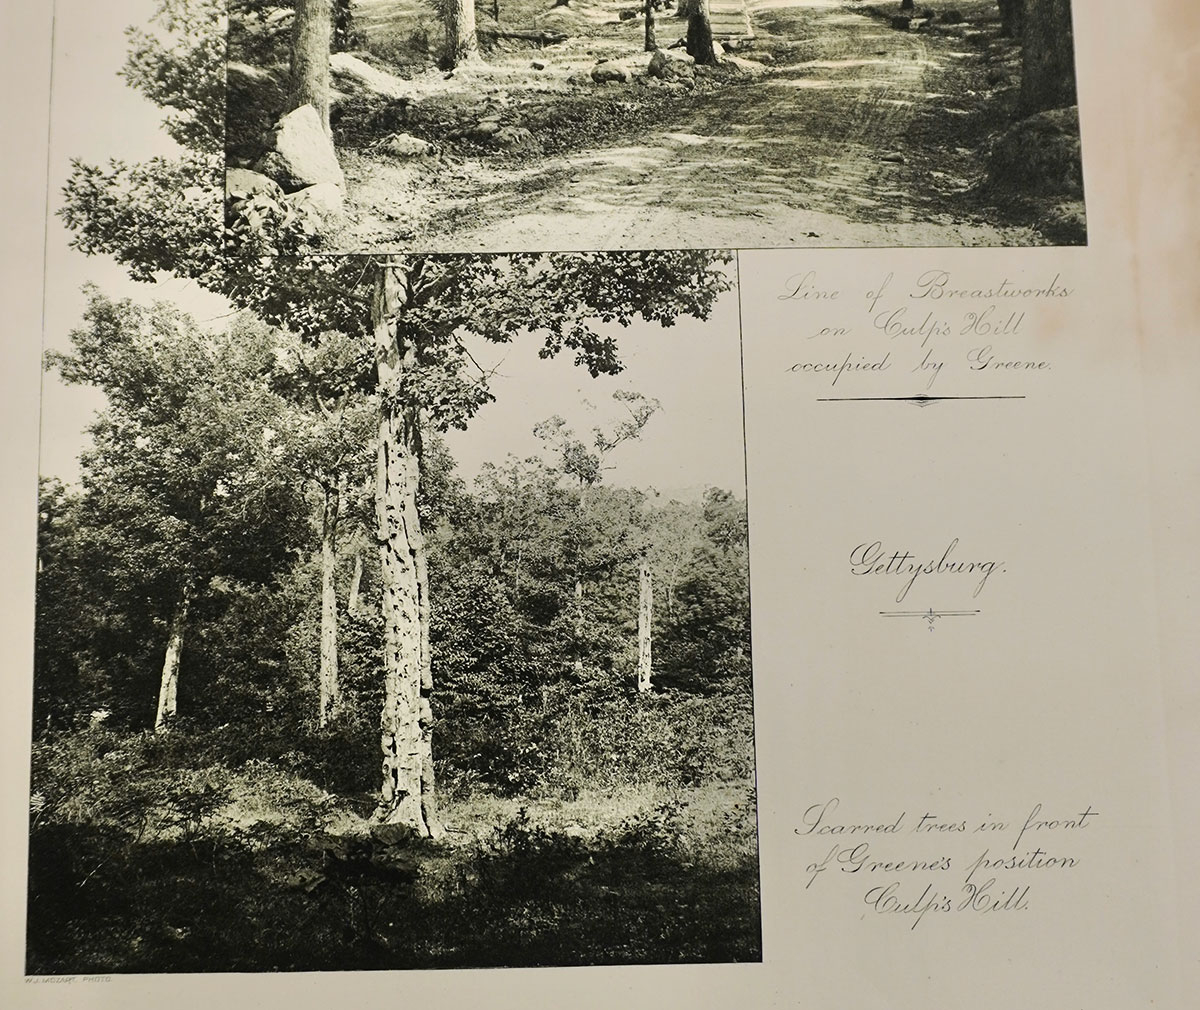 Line of Breastworks
on Culp's Hill
occupied by Greene.
Gettysburg.
Scarred trees in front
of Greene's position
Culp's Hill.
PHOTO.